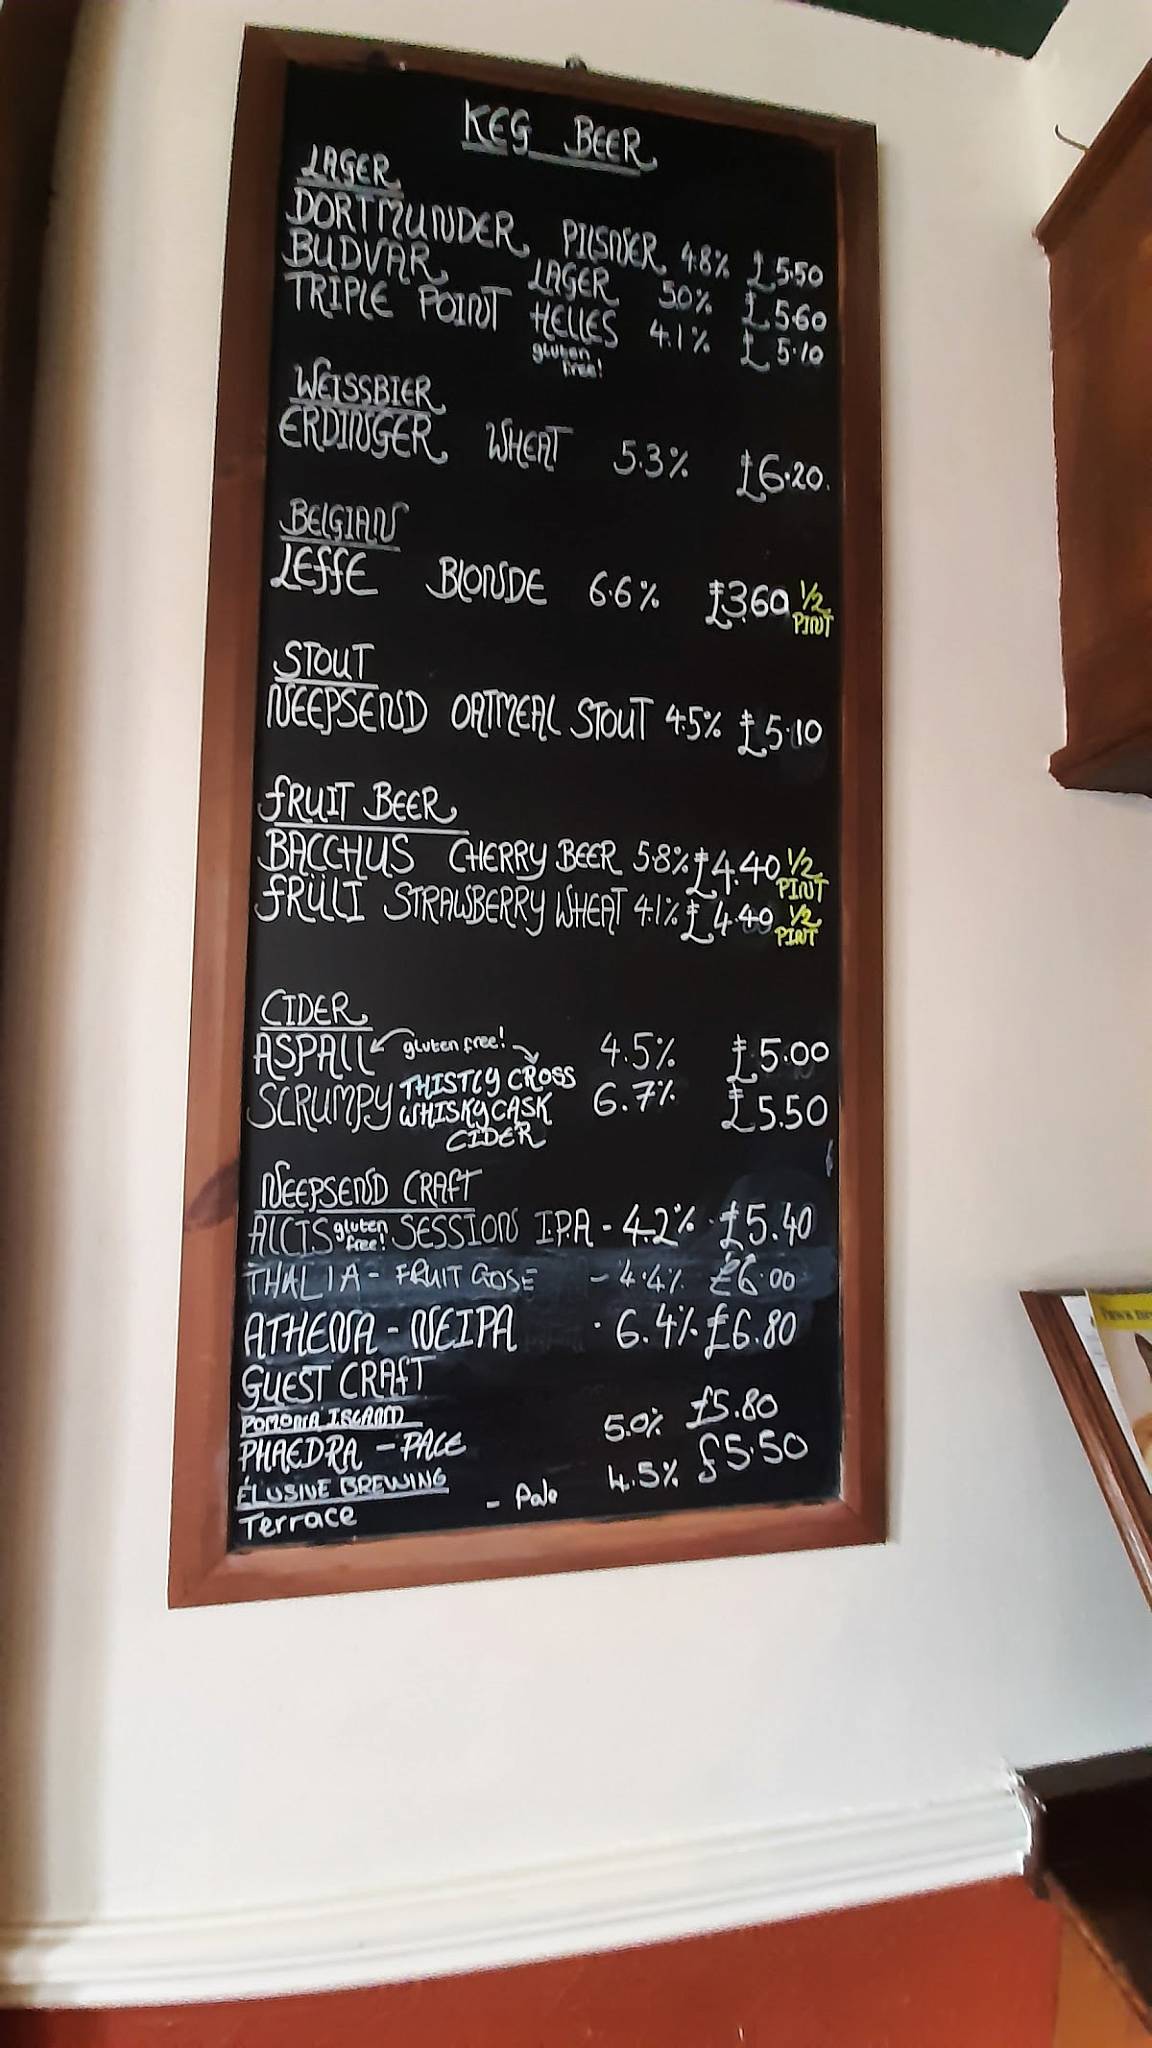 KEG BEER
LAGER
DORTMUNDER PILSNER 4.8% £5.50
BUDVAR LAGER 5.0% £5.60
TRIPLE POINT HELLES 4.1% £5.10
gluten
free!
WEISSBIER
ERDINGER WHEAT 5.3% £6.20.
BELGIAN
LEFFE BLONDE 6.6% £3.60 1/2
PINT
STOUT
NEEPSEND OATMEAL STOUT 4.5% £5.10
FRUIT BEER
BACCHUS CHERRY BEER 5.8% £4.40 1/2
PINT
FRÜLI STRAWBERRY WHEAT 4.1% £4.40 1/2
PINT
CIDER
ASPALL gluten free! 4.5% £5.00
SCRUMPY THISTLY CROSS 6.7% £5.50
WHISKY CASK
CIDER
NEEPSEND CRAFT
ALCIS gluten free! SESSION I.P.A - 4.2% £5.40
THALIA - FRUIT GOSE - 4.4% £6.00
ATHENA - NEIPA 6.4% £6.80
GUEST CRAFT
POMONA ISLAND
PHAEDRA - PALE 5.0% £5.80
ELUSIVE BREWING
Terrace - Pale 4.5% £5.50